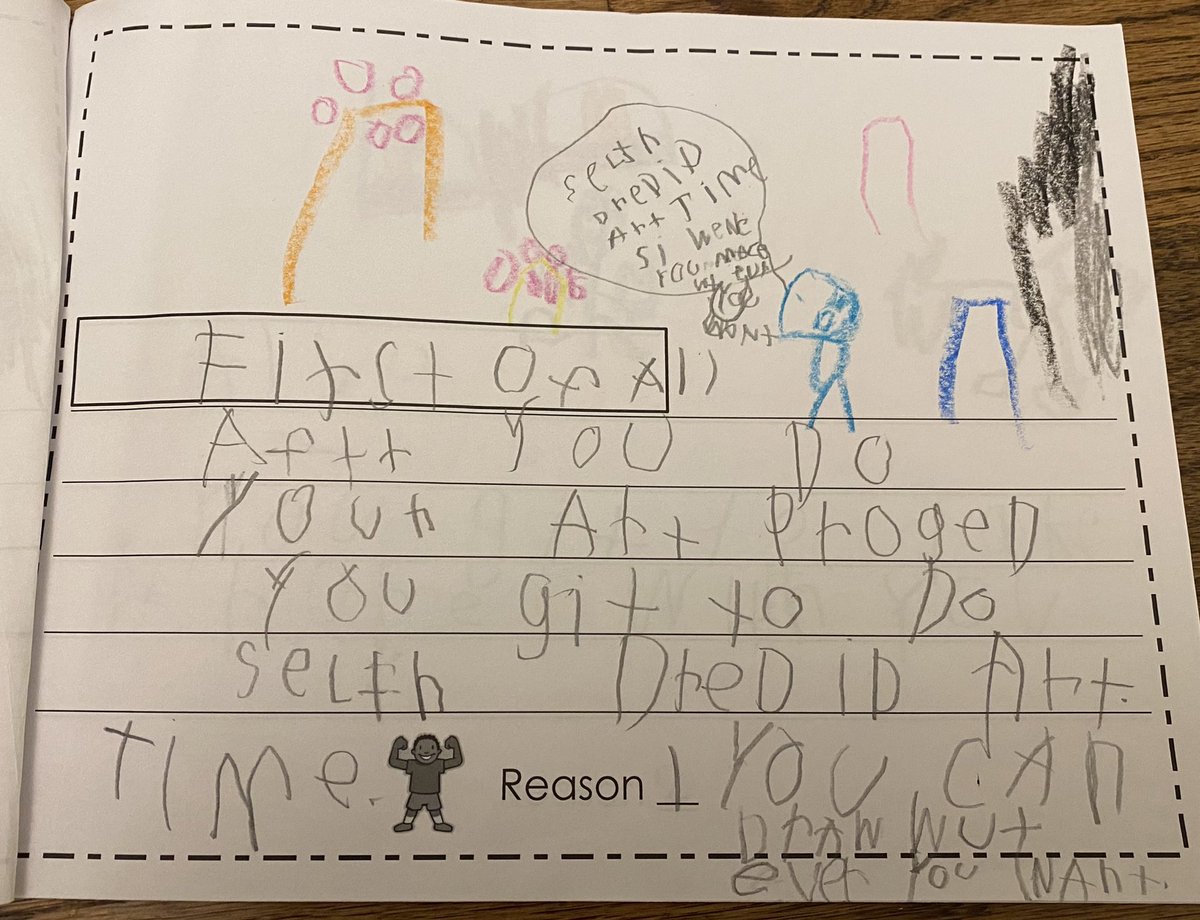 selth
DreDiD
Art Time
si wene
you mace
want
First Of All
Aftr You Do
Your Art ProgeD
You git to Do
selth DreD iD Art.
Time. Reason 1 You CAn
DrAW WUt
ever You WAnt.